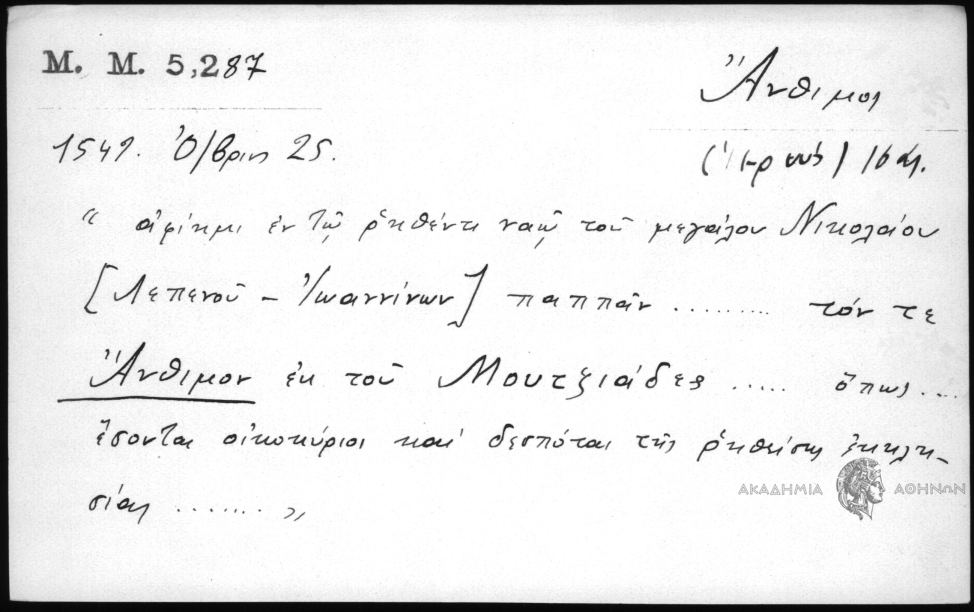 Μ. Μ. 5,287
Ἄνθιμος
1549. Ὀ/βρίῳ 25.
(ἱερεύς) 16 αἰ.
“ ἀφίημι ἐν τῷ ῥηθέντι ναῷ τοῦ μεγάλου Νικολάου
[Λεπενοῦ – Ἰωαννίνων] παππᾶν ......... τόν τε
Ἄνθιμον ἐκ τοῦ Μουτζιάδες ..... ὅπως ....
ἔσονται οἰκοκύριοι καὶ δεσπόται τῆς ῥηθείσης ἐκκλη-
σίας ....... „
ΑΚΑΔΗΜΙΑ ΑΘΗΝΩΝ